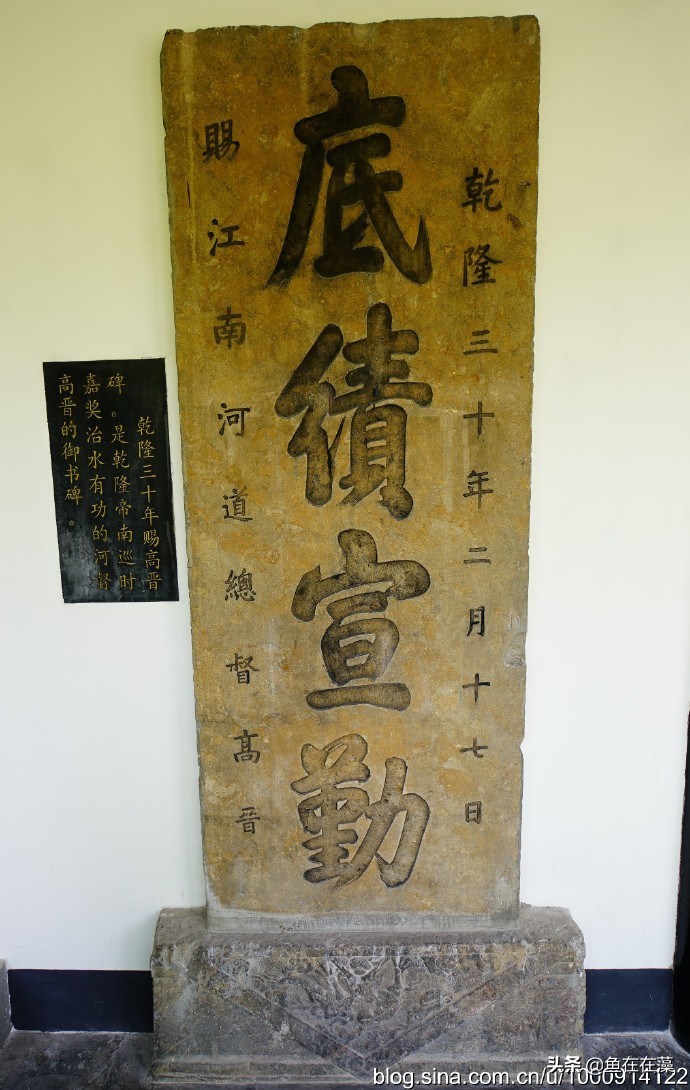 乾隆三十年二月十七日
底績宣勤
賜江南河道總督高晉
乾隆三十年赐高晋
碑。是乾隆帝南巡时
嘉奖治水有功的河督
高晋的御书碑。
头条@鱼在在藻
blog.sina.com.cn/u/1060914122